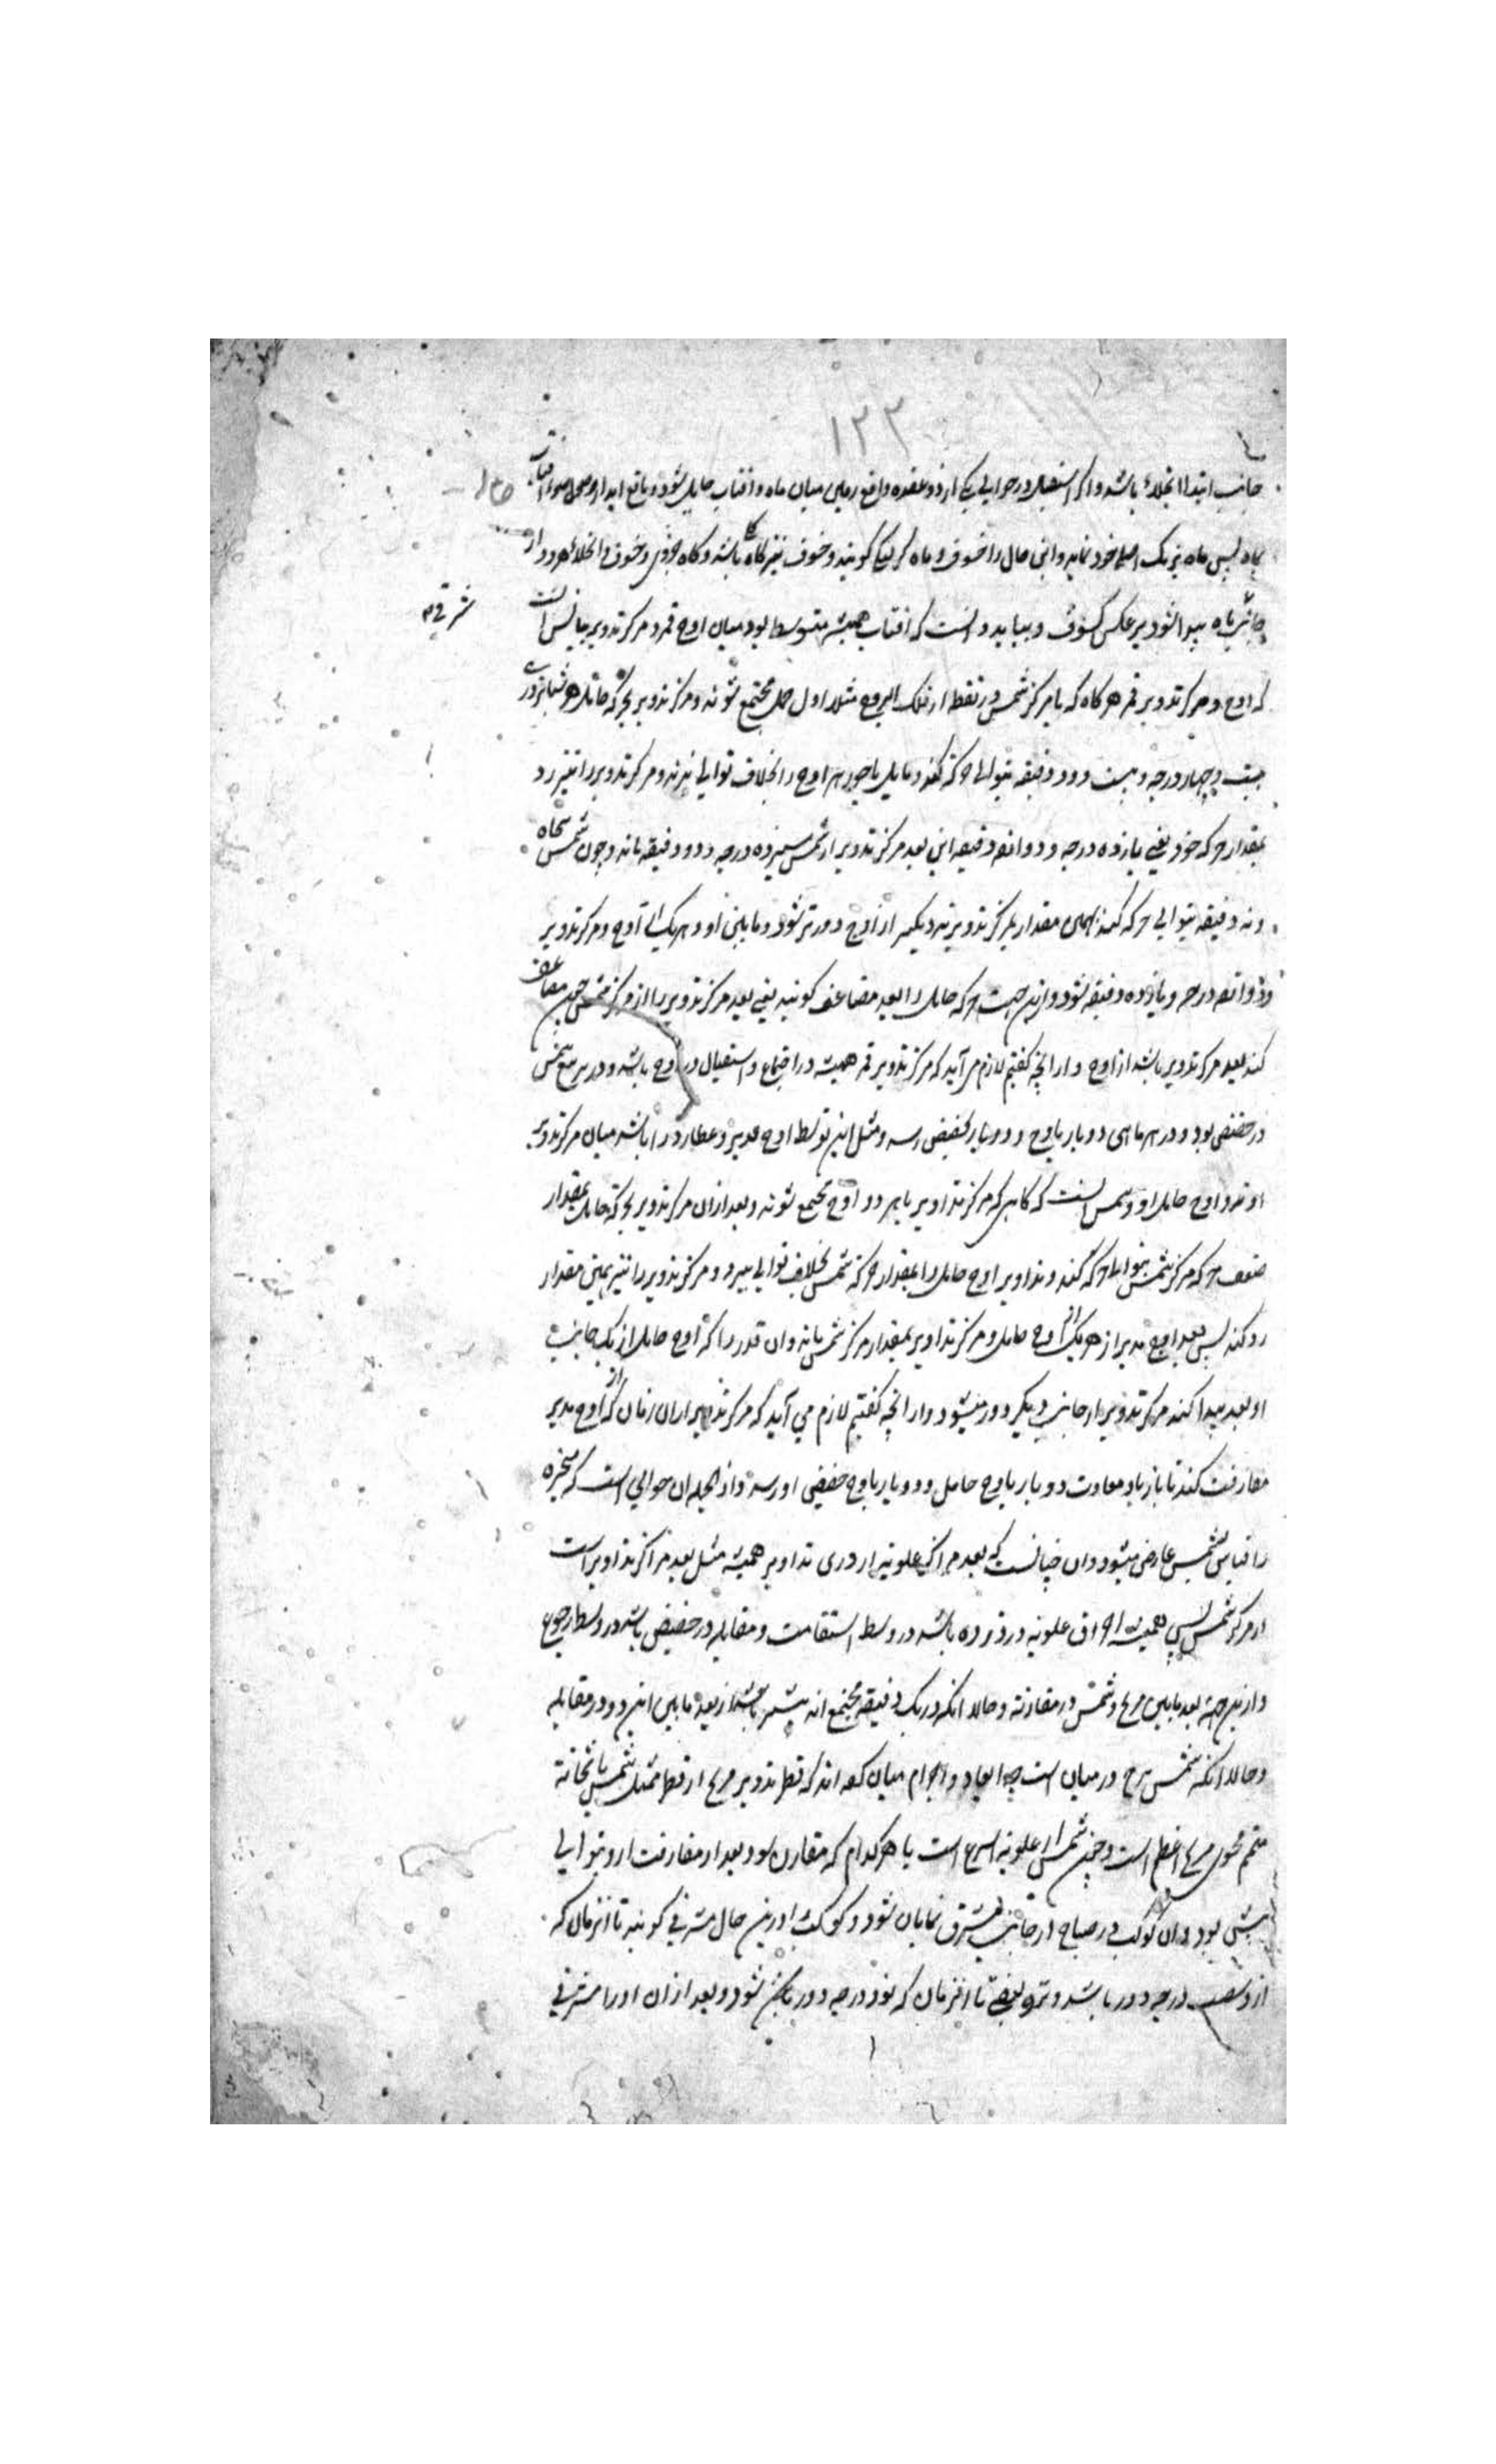 ۱۲۳
جانب ابتدا انجلاء باشد و اگر استقبال در حوالی یکی از دو عقده واقع زمین میان ماه و افتاب حایل شود و مانع اید از وصول ضوء افتاب
بماه پس ماه برنک اصلی خود نماید و این حال را خسوف و ماه گرفتگی گویند و خسوف نیز گاه کلی باشد و گاه جزوی و خسوف و انجلاء هر دو از
جانب شرقی ماه پیدا شود بر عکس کسوف و بباید دانست که افتاب همیشه متوسط بود میان اوج قمر و مرکز تدویر بیانش انست
شرقی
که اوج و مرکز تدویر قمر هرگاه که با مرکز شمس در نقطه از فلک البروج مثلا اول حمل مجتمع شوند و مرکز تدویر بحرکة حامل هر شبانروزی
بیست و چهار درجه و بیست و دو دقیقه بتوالی حرکة کند و مایل با جوزهر اوج را بخلاف توالی برند و مرکز تدویر را نیز رد
بمقدار حرکه خود یعنی یازده درجه و دوازده دقیقه این بعد مرکز تدویر از شمس سیزده درجه و دو دقیقه ماند و چون شمس پنجاه
و نه دقیقه بتوالی حرکه کند بهمین مقدار بمرکز تدویر نزدیکتر از اوج دورتر شود و ما بین او و هر یک از اوج و مرکز تدویر
دوازده درجه و یازده دقیقه شود و ازین جهت حرکه حامل را بعد مضاعف گویند یعنی بعد مرکز تدویر را از مرکز شمس چون مضاعف
کنند بعد مرکز تدویر باشد از اوج و از انچه گفتیم لازم می آید که مرکز تدویر قمر همیشه در اجتماع و استقبال در اوج باشد و در تربیع شمس
در حضیض بود و در هر ماهی دو بار باوج و دو بار بحضیض رسد و مثل این توسط اوج مدیر عطارد را باشد میان مرکز تدویر
او و اوج حامل او و بیانش انست که گاهی که مرکز تداویر با هر دو اوج مجتمع شوند و بعد ازان مرکز تدویر بحرکة حامل بمقدار
ضعف حرکه مرکز شمس بتوالی حرکه کند و مدیر اوج حامل را بمقدار حرکة شمس بخلاف توالی میبرد و مرکز تدویر را نیز بهمین مقدار
رد کند پس بعد اوج مدیر از هر یک از اوج حامل و مرکز تداویر بمقدار مرکز شمس باشد و ان قدر را که اوج حامل از یک جانب
او بعد پیدا کند مرکز تدویر از جانب دیگر دور میشود و از انچه گفتیم لازم می آید که مرکز تدویر از ان زمان که از اوج مدیر
مفارقت کند تا باز باو معاودت دو بار باوج حامل و دو بار باوج حضیض او رسد و از جمله ان حوالی است که متحیره
را قیاس بشمس عارض میشود و ان چنانست که بعد مراکز علویه از ذروه تداویر همیشه مثل بعد مراکز تداویر است
از مرکز شمس پس همیشه احتراق علویه در ذروه باشد در وسط استقامت و مقابله در حضیض باشد در وسط رجوع
و ازین جهة بعد ما بین مریخ و شمس در مقارنة و حالا انکه در یک دقیقه مجتمع اند بیشتر باشد از بعد ما بین این دو در مقابله
و حالا انکه شش برج در میان است چه در ابعاد و اجرام میان کرده اند که قطر تدویر مریخ از قطر ممثل شمس با ثخانه
متمم محوی مریخ اعظم است و چون شمس از علویه اسرع است با هر کدام که مقارن بود بعد از مفارقت ازو بتوالی
پیش بود و ان کوکب در صباح از جانب مشرق نمایان شود و کوکب را درین حال مشرقی گویند تا انزمان که
ازو شصت درجه دور باشد و نزد بعضی تا انزمان که نود درجه دور شود و بعد ازان او را مشرقی